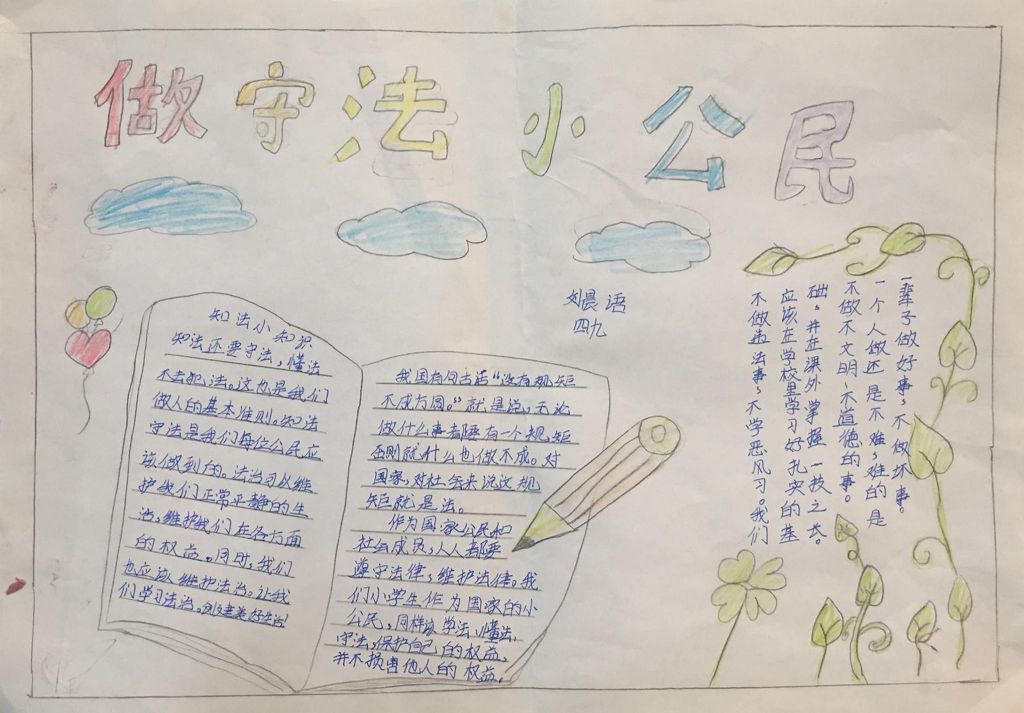 做守法小公民
刘晨语
四九
知法小知识
知法还要守法，懂法
不去犯法。这也是我们
做人的基本准则。知法
守法是我们每位公民应
该做到的。法治可以维
护我们正常平静的生
活，维护我们在各方面
的权益。同时，我们
也应该维护法治。让我
们学习法治。创建美好生活
我国有句古话“没有规矩
不成方圆。”就是说，无论
做什么事都要有一个规矩
否则就什么也做不成。对
国家，对社会来说这规
矩就是法。
作为国家公民和
社会成员，人人都要
遵守法律，维护法律。我
们小学生作为国家的小
公民，同样该学法，懂法，
守法，保护自己的权益，
并不损害他人的权益。
不做违法事、不学恶风习。我们
应该在学校里学习好扎实的基
础。并在课外掌握一技之长。
不做不文明、不道德的事。
一个人做还是不难，难的是
一辈子做好事，不做坏事。